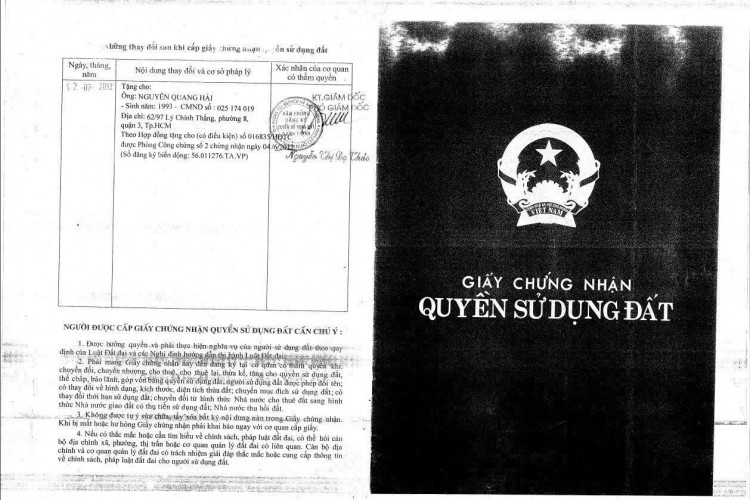 Những thay đổi sau khi cấp giấy chứng nhận quyền sử dụng đất
Ngày, tháng, năm
Nội dung thay đổi và cơ sở pháp lý
Xác nhận của cơ quan có thẩm quyền
12-07-2012
Tặng cho:
Ông: NGUYỄN QUANG HẢI
- Sinh năm: 1993 - CMND số : 025 174 019
Địa chỉ: 62/97 Lý Chính Thắng, phường 8,
quận 3, Tp.HCM
Theo Hợp đồng tặng cho (có điều kiện) số 016835/HĐTC
được Phòng Công chứng số 2 chứng nhận ngày 04/6/2012
(Số đăng ký biến động: 56.011276.TA.VP)
KT.GIÁM ĐỐC
PHÓ GIÁM ĐỐC
VĂN PHÒNG
ĐĂNG KÝ
QUYỀN SỬ DỤNG ĐẤT
Nguyễn Thị Dạ Thảo
NGƯỜI ĐƯỢC CẤP GIẤY CHỨNG NHẬN QUYỀN SỬ DỤNG ĐẤT CẦN CHÚ Ý :
1. Được hưởng quyền và phải thực hiện nghĩa vụ của người sử dụng đất theo quy
định của Luật Đất đai và các Nghị định hướng dẫn thi hành Luật Đất đai.
2. Phải mang Giấy chứng nhận này đến đăng ký tại cơ quan có thẩm quyền khi:
chuyển đổi, chuyển nhượng, cho thuê, cho thuê lại, thừa kế, tặng cho quyền sử dụng đất,
thế chấp, bảo lãnh, góp vốn bằng quyền sử dụng đất; người sử dụng đất được phép đổi tên;
có thay đổi về hình dạng, kích thước, diện tích thửa đất; chuyển mục đích sử dụng đất; có
thay đổi thời hạn sử dụng đất; chuyển đổi từ hình thức Nhà nước cho thuê đất sang hình
thức Nhà nước giao đất có thu tiền sử dụng đất; Nhà nước thu hồi đất.
3. Không được tự ý sửa chữa, tẩy xóa bất kỳ nội dung nào trong Giấy chứng nhận.
Khi bị mất hoặc hư hỏng Giấy chứng nhận phải khai báo ngay với cơ quan cấp giấy.
4. Nếu có thắc mắc hoặc cần tìm hiểu về chính sách, pháp luật đất đai, có thể hỏi cán
bộ địa chính xã, phường, thị trấn hoặc cơ quan quản lý đất đai có liên quan. Cán bộ địa
chính và cơ quan quản lý đất đai có trách nhiệm giải đáp thắc mắc hoặc cung cấp thông tin
về chính sách, pháp luật đất đai cho người sử dụng đất.
VIỆT NAM
GIẤY CHỨNG NHẬN
QUYỀN SỬ DỤNG ĐẤT